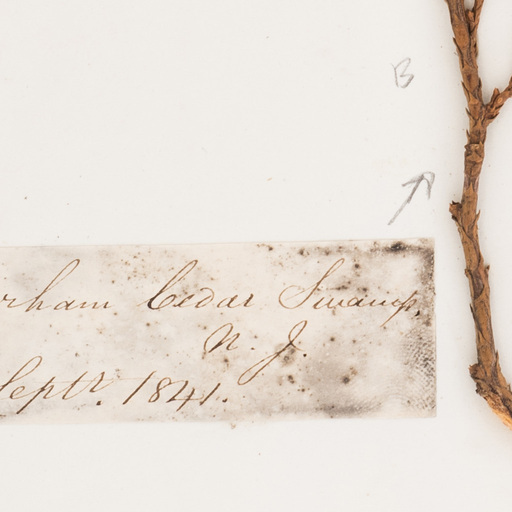 B
rham Cedar Swamp,
N. J.
Septr. 1841.